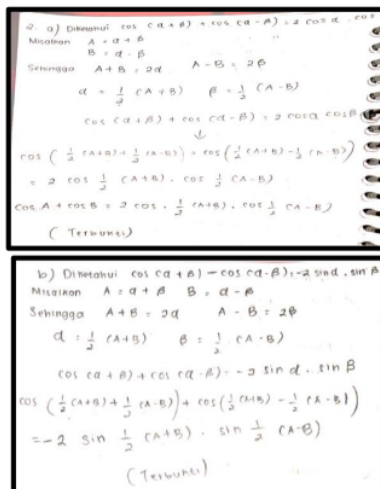 2. a) Diketahui cos (α + β) + cos (α - β) = 2 cos α . cos
Misalkan A = α + β
B = α - β
Sehingga A + B = 2α A - B = 2β
α = 1/2 (A + B) β = 1/2 (A - B)
cos (α + β) + cos (α - β) = 2 cos α cos β
↓
cos (1/2 (A+B) + 1/2 (A-B)) + cos (1/2 (A+B) - 1/2 (A-B))
= 2 cos 1/2 (A+B) . cos 1/2 (A-B)
cos A + cos B = 2 cos . 1/2 (A+B) . cos 1/2 (A-B)
(Terbukti)
b) Diketahui cos (α + β) - cos (α - β) = -2 sin α . sin β
Misalkan A = α + β B = α - β
Sehingga A + B = 2α A - B = 2β
α = 1/2 (A+B) β = 1/2 (A-B)
cos (α + β) + cos (α - β) = -2 sin α . sin β
cos (1/2 (A+B) + 1/2 (A-B)) + cos (1/2 (A+B) - 1/2 (A-B))
= -2 sin 1/2 (A+B) . sin 1/2 (A-B)
(Terbukti)